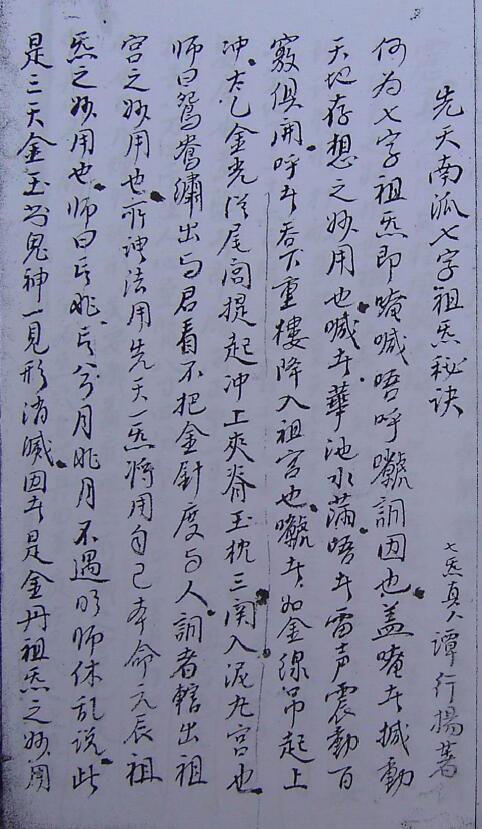 先天南派七字祖炁秘诀
七炁真人谭行扬著
何为七字祖炁即唵喊唔呼嚱詷因也盖唵者撼動
天地存想之妙用也喊者華池水滿唔者雷声震動百
竅俱開呼者吞下重樓降入祖宮也者如金線吊起上
冲太乙金光從尾闾提起冲上夾脊玉枕三関入泥丸宮也
师曰鴛鴦繡出与君看不把金針度与人詷者轄出祖
宫之妙用也所謂法用先天一炁将用自己本命元辰祖
炁之妙用也师曰言非言兮月非月不遇明师休乱说此
是三天金玉尚鬼神一見形消滅因者是金丹祖炁之妙用